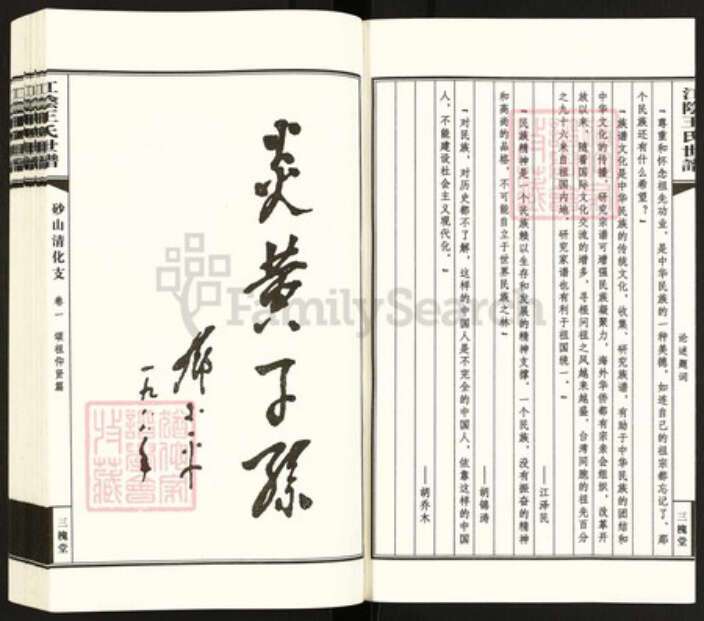 江陰王氏世譜
论述题词
三槐堂
“尊重和怀念祖先功业，是中华民族的一种美德，如连自己的祖宗都忘记了，那
个民族还有什么希望？”
“族谱文化是中华民族的传统文化。收集、研究族谱，有助于中华民族的团结和
中华文化的传播。研究宗谱可增强民族凝聚力。海外华侨都有宗亲会组织，改革开
放以来，随着国际文化交流的增多，寻根问祖之风越来越盛。台湾同胞的祖先百分
之九十六来自祖国内地，研究家谱也有利于祖国统一。”
——江泽民
“民族精神是一个民族赖以生存和发展的精神支撑。一个民族，没有振奋的精神
和高尚的品格，不可能自立于世界民族之林”
——胡锦涛
“对民族，对历史都不了解，这样的中国人是不完全的中国人，依靠这样的中国
人，不能建设社会主义现代化。”
——胡乔木
炎黄子孫
邓小平
江陰王氏世譜
砂山清化支
卷一
颂祖仰贤篇
三槐堂
猶他家
譜學會
特藏
FamilySearch